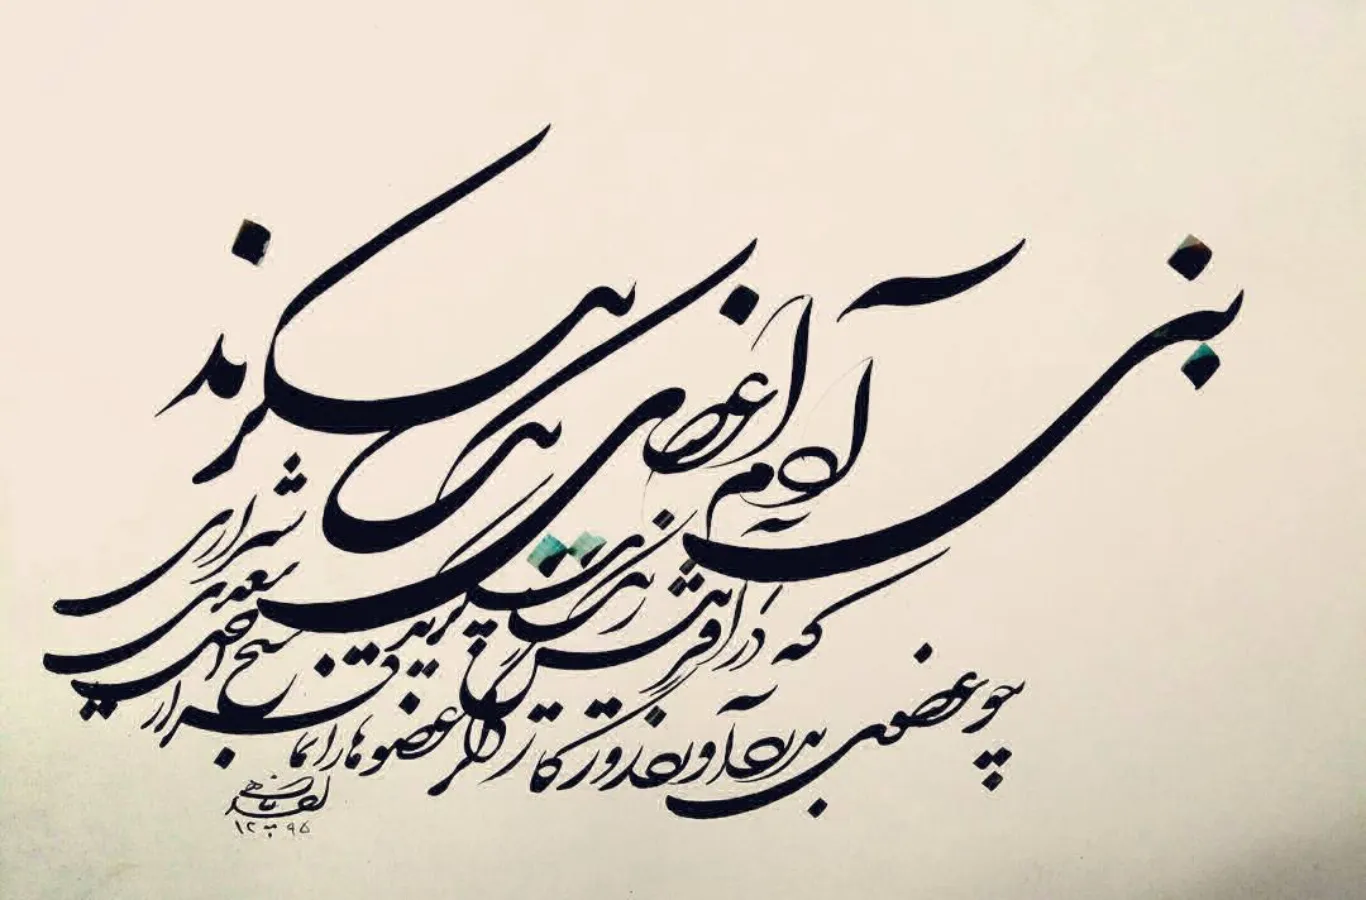 بنی آدم اعضای یکدیگرند
که در آفرینش ز یک گوهرند
چو عضوی بدرد آورد روزگار
دگر عضوها را نماند قرار
شیخ اجل سعدی شیرازی